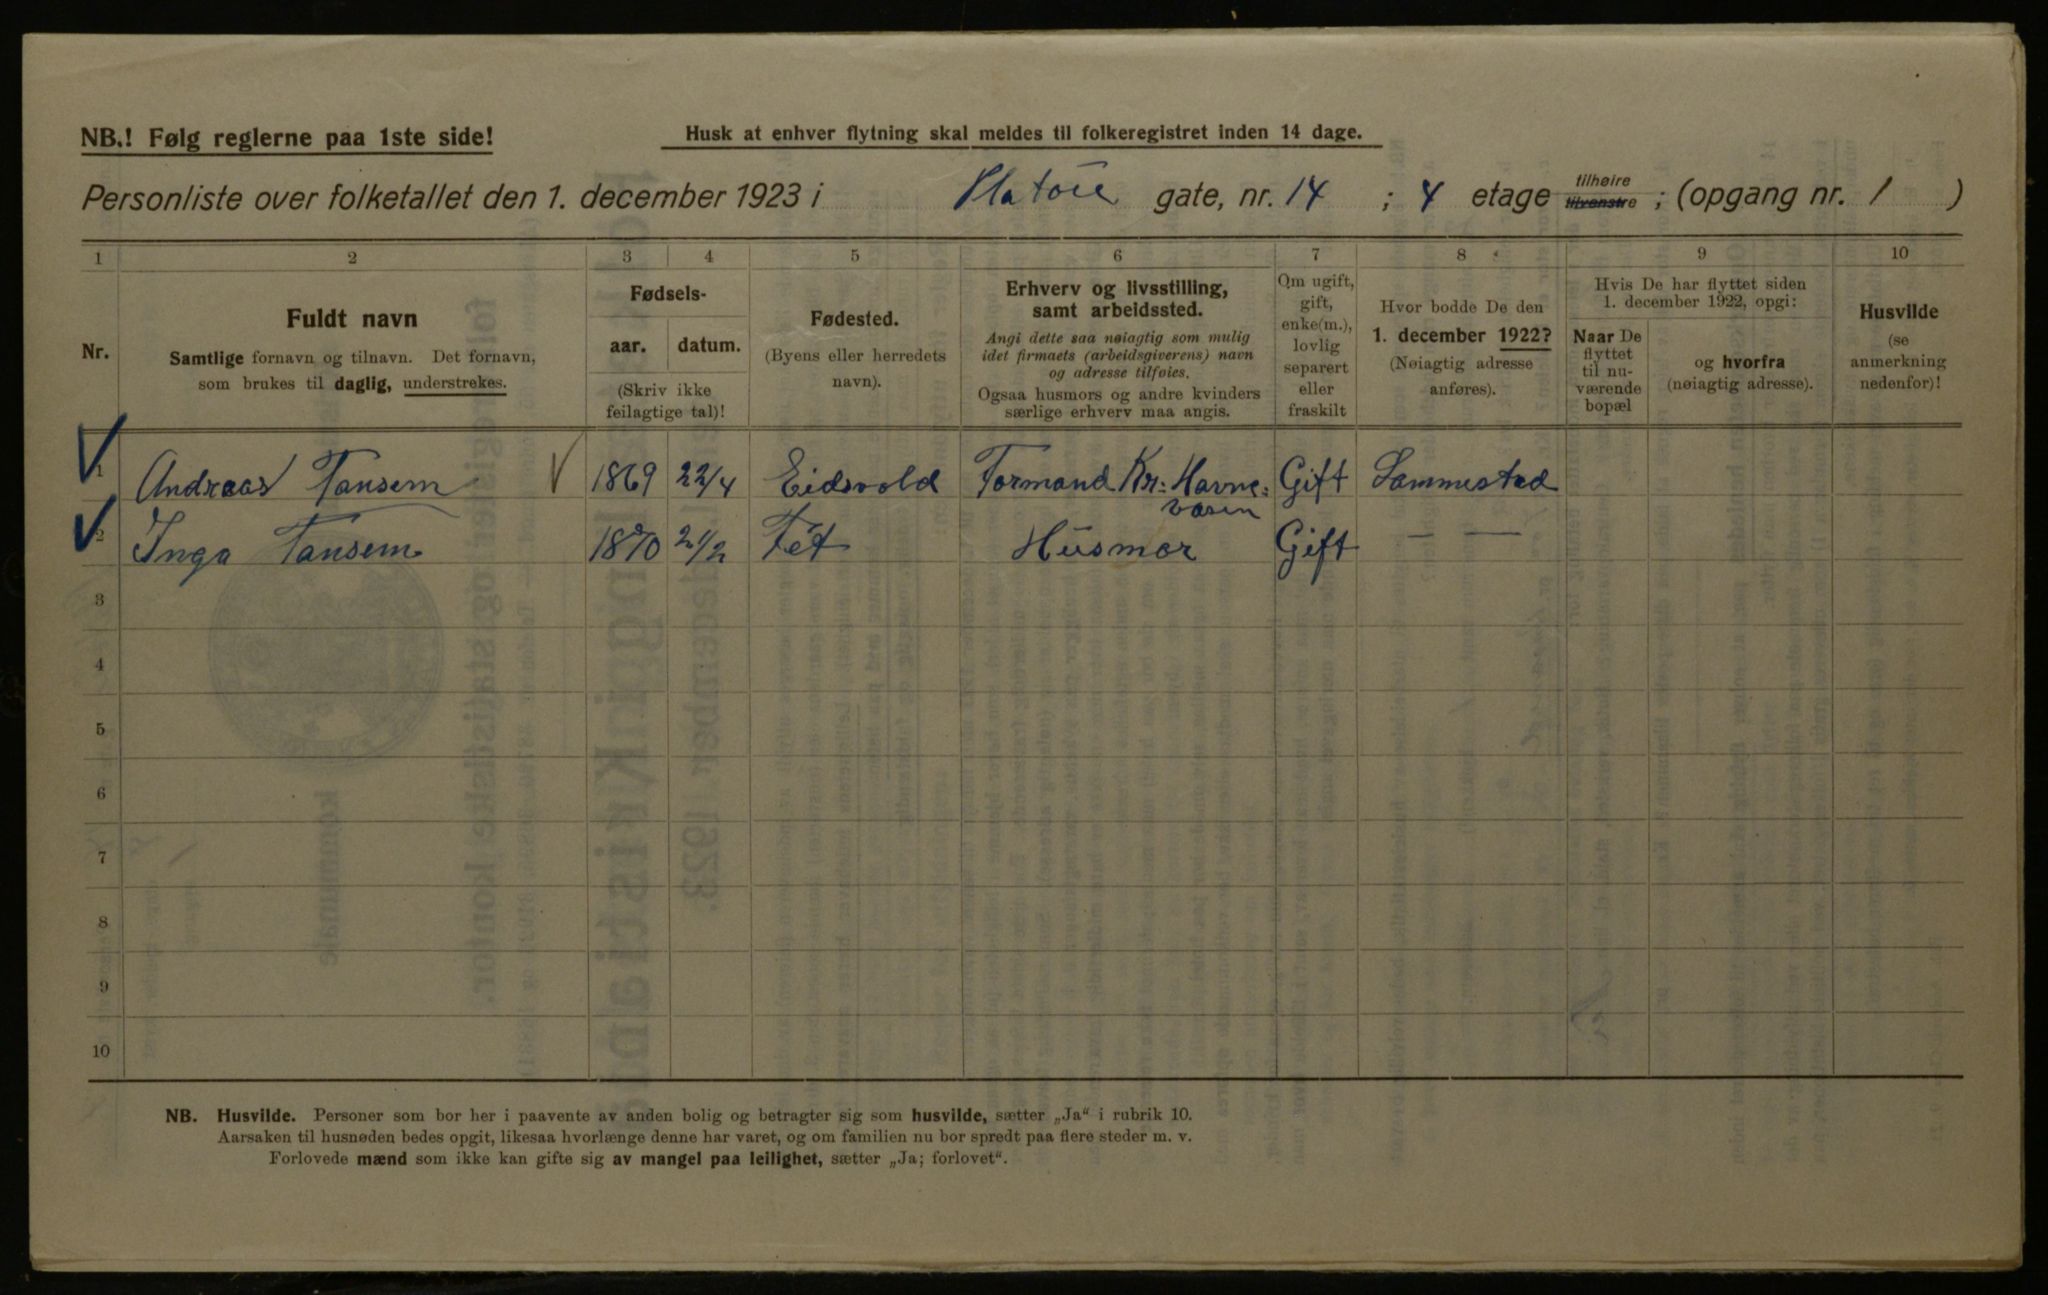 NB.! Følg reglerne paa 1ste side!
Husk at enhver flytning skal meldes til folkeregistret inden 14 dage.
Personliste over folketallet den 1. december 1923 i Platous gate, nr. 14 ; 4 etage tilhøire tilvenstre ; (opgang nr. 1 )
1 2 3 4 5 6 7 8 9 10
Nr.
Fuldt navn
Samtlige fornavn og tilnavn. Det fornavn,
som brukes til daglig, understrekes.
Fødsels-
aar. datum.
(Skriv ikke
feilagtige tal)!
Fødested.
(Byens eller herredets
navn).
Erhverv og livsstilling,
samt arbeidssted.
Angi dette saa nøiagtig som mulig
idet firmaets (arbeidsgiverens) navn
og adresse tilføies.
Ogsaa husmors og andre kvinders
særlige erhverv maa angis.
Om ugift,
gift,
enke(m.),
lovlig
separert
eller
fraskilt
Hvor bodde De den
1. december 1922?
(Nøiagtig adresse
anføres).
Hvis De har flyttet siden
1. december 1922, opgi:
Naar De
flyttet
til nu-
værende
bopæl
og hvorfra
(nøiagtig adresse).
Husvilde
(se
anmerkning
nedenfor)!
1 Andreas Tansem 1869 22/4 Eidsvold Formand Kr: Havne= Gift Sammested
væsen
2 Inga Tansem 1870 21/2 Fet Husmor Gift — —
3
4
5
6
7
8
9
10
NB. Husvilde. Personer som bor her i paavente av anden bolig og betragter sig som husvilde, sætter „Ja“ i rubrik 10.
Aarsaken til husnøden bedes opgit, likesaa hvorlænge denne har varet, og om familien nu bor spredt paa flere steder m. v.
Forlovede mænd som ikke kan gifte sig av mangel paa leilighet, sætter „Ja; forlovet“.